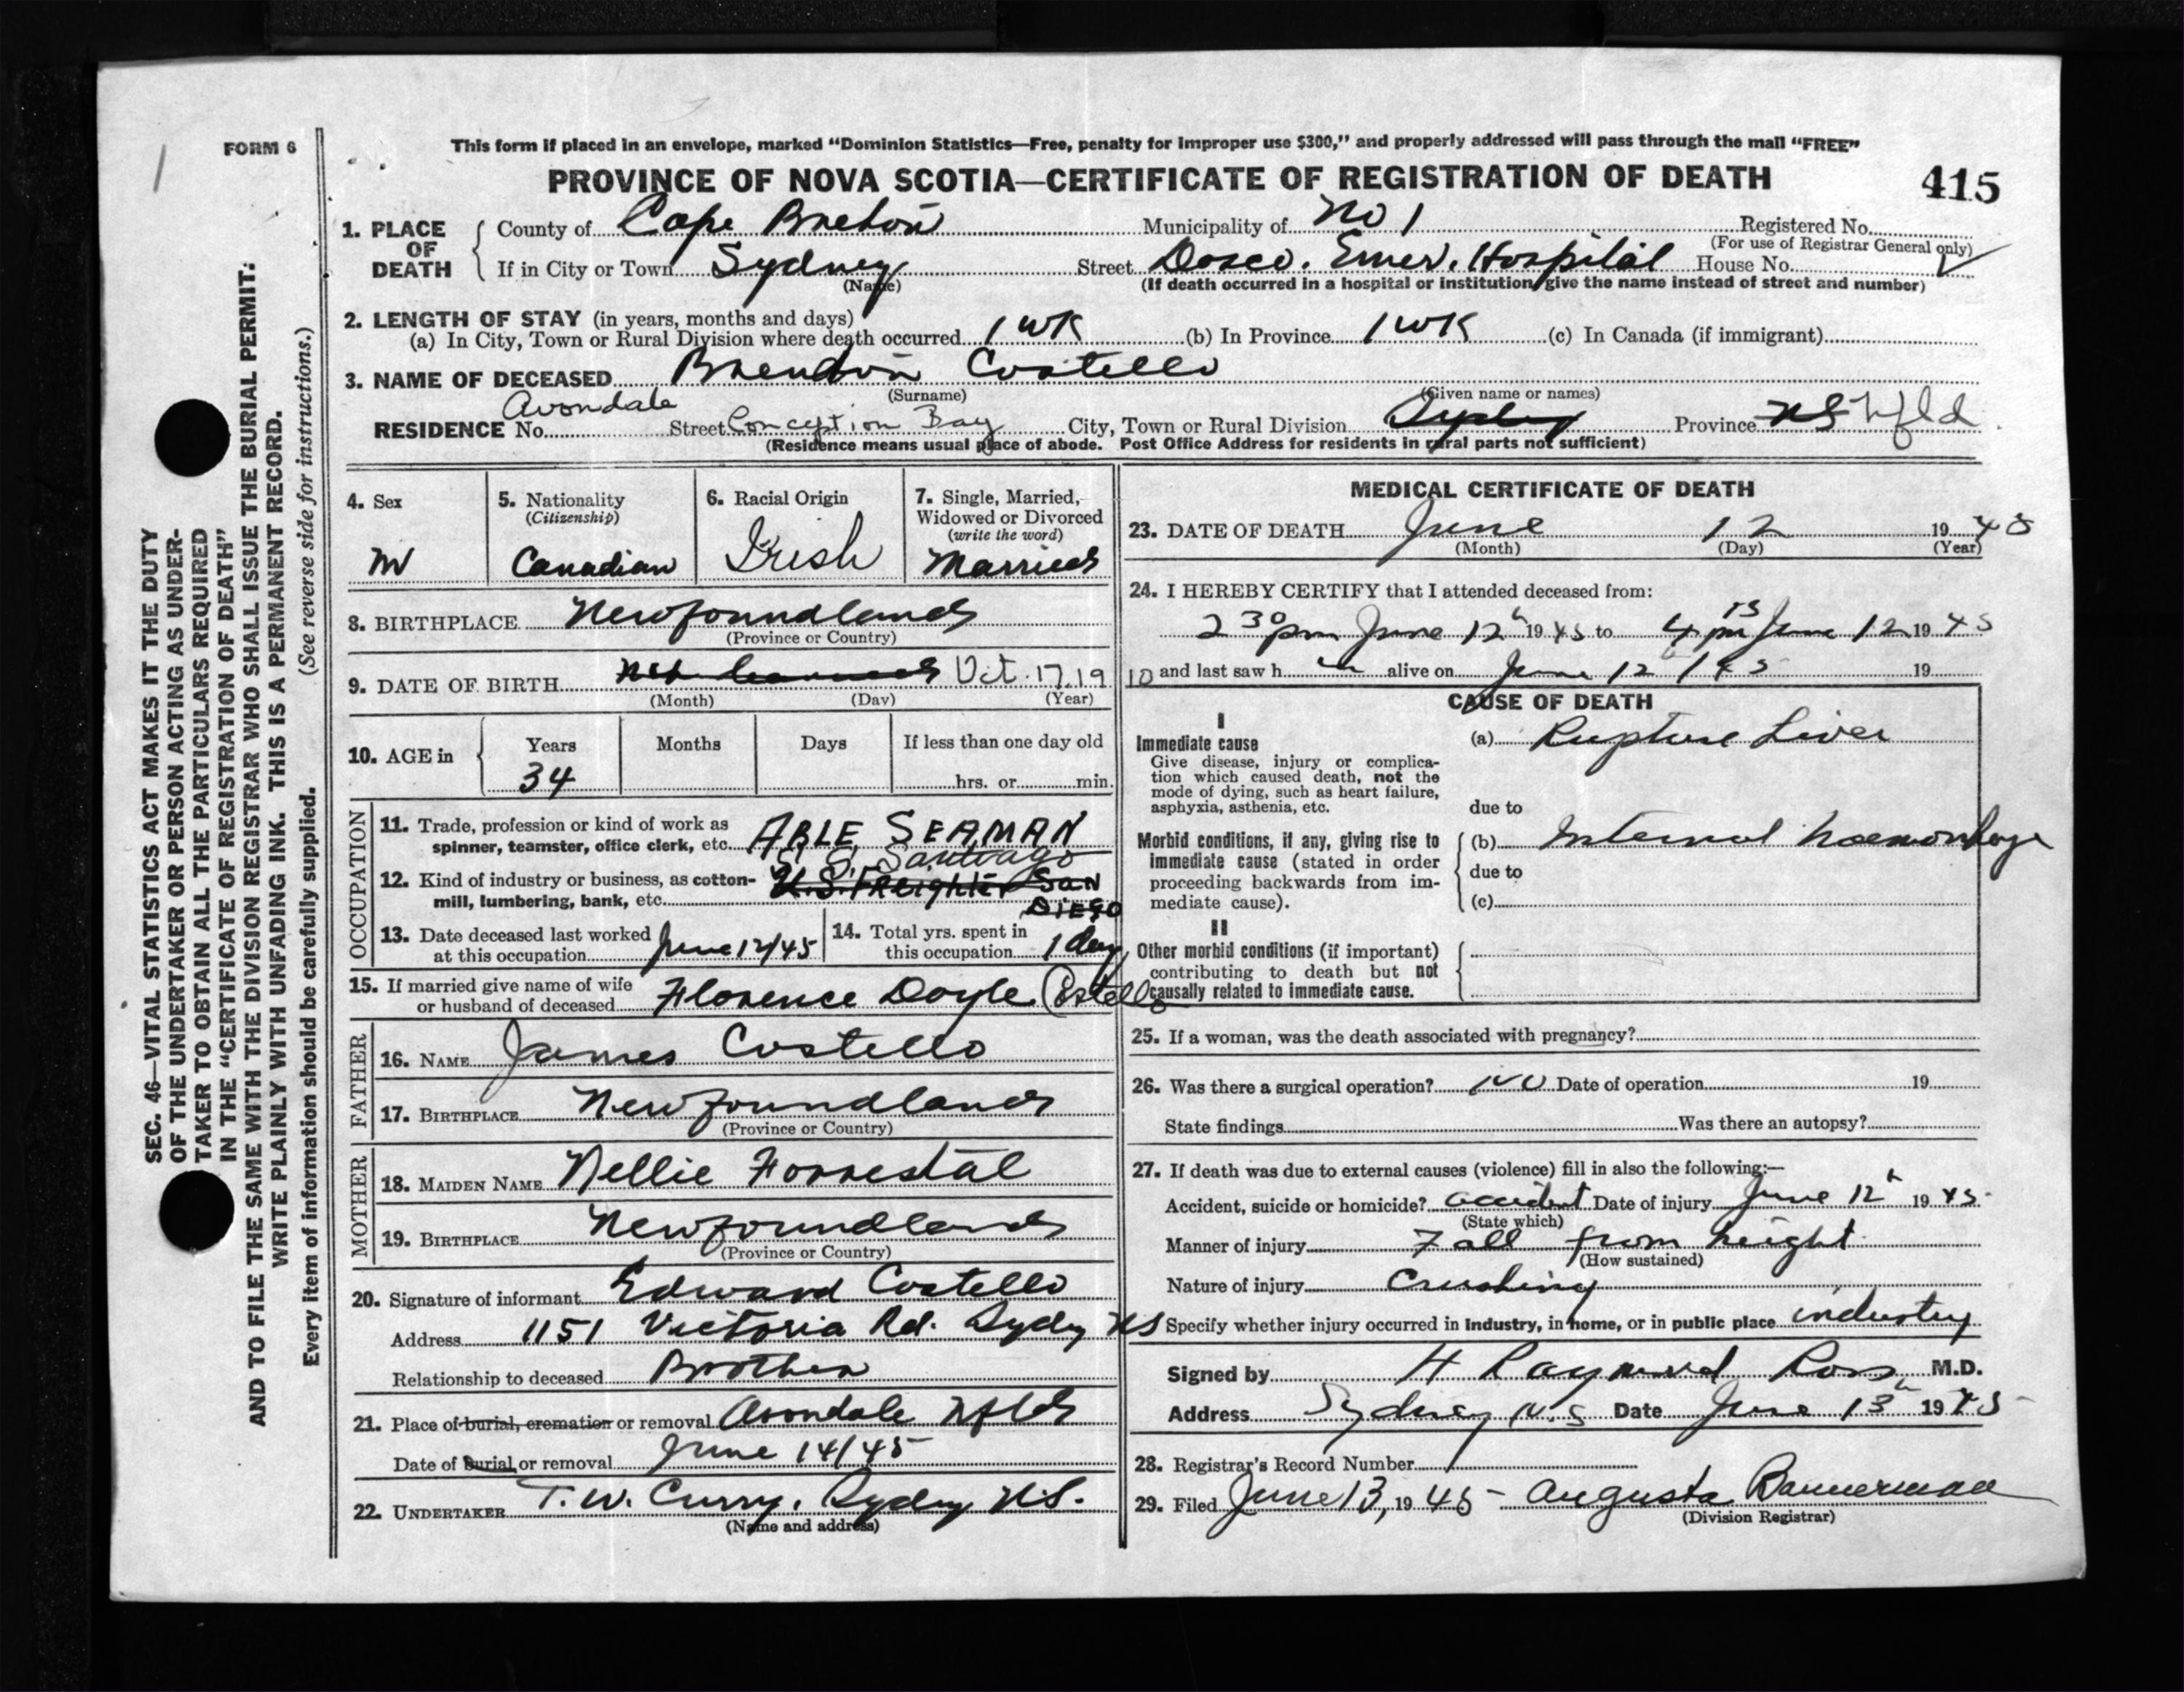 FORM 6
This form if placed in an envelope, marked “Dominion Statistics—Free, penalty for improper use $300,” and properly addressed will pass through the mail “FREE”
PROVINCE OF NOVA SCOTIA—CERTIFICATE OF REGISTRATION OF DEATH
415
1. PLACE OF DEATH
County of Cape Breton Municipality of No 1 Registered No.
(For use of Registrar General only)
If in City or Town Sydney Street Dosco. Emer. Hospital House No.
(Name) (If death occurred in a hospital or institution give the name instead of street and number)
2. LENGTH OF STAY (in years, months and days)
(a) In City, Town or Rural Division where death occurred 1 WK (b) In Province 1 WK (c) In Canada (if immigrant)
3. NAME OF DECEASED Brendon Costello
(Surname) (Given name or names)
Avondale
RESIDENCE No. Street Conception Bay City, Town or Rural Division Sydney Province NS Nfld.
(Residence means usual place of abode. Post Office Address for residents in rural parts not sufficient)
4. Sex
M
5. Nationality
(Citizenship)
Canadian
6. Racial Origin
Irish
7. Single, Married, Widowed or Divorced
(write the word)
Married
8. BIRTHPLACE Newfoundland
(Province or Country)
9. DATE OF BIRTH Oct. 17. 1910
(Month) (Day) (Year)
10. AGE in
Years Months Days If less than one day old
34 hrs. or min.
OCCUPATION
11. Trade, profession or kind of work as
spinner, teamster, office clerk, etc. ABLE SEAMAN
S.S. Santiago
12. Kind of industry or business, as cotton- U.S. FREIGHTER SAN
mill, lumbering, bank, etc. DIEGO
13. Date deceased last worked
at this occupation June 12/45
14. Total yrs. spent in
this occupation 1 day
15. If married give name of wife
or husband of deceased Florence Doyle (Costello
FATHER
16. NAME James Costello
17. BIRTHPLACE Newfoundland
(Province or Country)
MOTHER
18. MAIDEN NAME Nellie Forrestal
19. BIRTHPLACE Newfoundland
(Province or Country)
20. Signature of informant Edward Costello
Address 1151 Victoria Rd. Sydney NS
Relationship to deceased Brother
21. Place of burial, cremation or removal Avondale Nfld
Date of burial or removal June 14/45
22. UNDERTAKER T. W. Curry, Sydney N.S.
(Name and address)
MEDICAL CERTIFICATE OF DEATH
23. DATE OF DEATH June 12 1945
(Month) (Day) (Year)
24. I HEREBY CERTIFY that I attended deceased from:
2 30 pm June 12 h 1945 to 4 15 pm June 12 1945
and last saw h im alive on June 12 / 45 19
CAUSE OF DEATH
I
Immediate cause
Give disease, injury or complica-
tion which caused death, not the
mode of dying, such as heart failure,
asphyxia, asthenia, etc.
(a) Rupture Liver
due to
Morbid conditions, if any, giving rise to
immediate cause (stated in order
proceeding backwards from im-
mediate cause).
(b) Internal haemorrhage
due to
(c)
II
Other morbid conditions (if important)
contributing to death but not
causally related to immediate cause.
25. If a woman, was the death associated with pregnancy?
26. Was there a surgical operation? NO Date of operation 19
State findings Was there an autopsy?
27. If death was due to external causes (violence) fill in also the following:—
Accident, suicide or homicide? accident Date of injury June 12 h 1945
(State which)
Manner of injury Fall from height
(How sustained)
Nature of injury Crushing
Specify whether injury occurred in industry, in home, or in public place industry
Signed by H Raymond Ross M.D.
Address Sydney N.S Date June 13 h 1945
28. Registrar's Record Number
29. Filed June 13, 1945 Augusta Bannerman
(Division Registrar)
SEC. 46—VITAL STATISTICS ACT MAKES IT THE DUTY
OF THE UNDERTAKER OR PERSON ACTING AS UNDER-
TAKER TO OBTAIN ALL THE PARTICULARS REQUIRED
IN THE “CERTIFICATE OF REGISTRATION OF DEATH”
AND TO FILE THE SAME WITH THE DIVISION REGISTRAR WHO SHALL ISSUE THE BURIAL PERMIT.
WRITE PLAINLY WITH UNFADING INK. THIS IS A PERMANENT RECORD.
Every item of information should be carefully supplied. (See reverse side for instructions.)